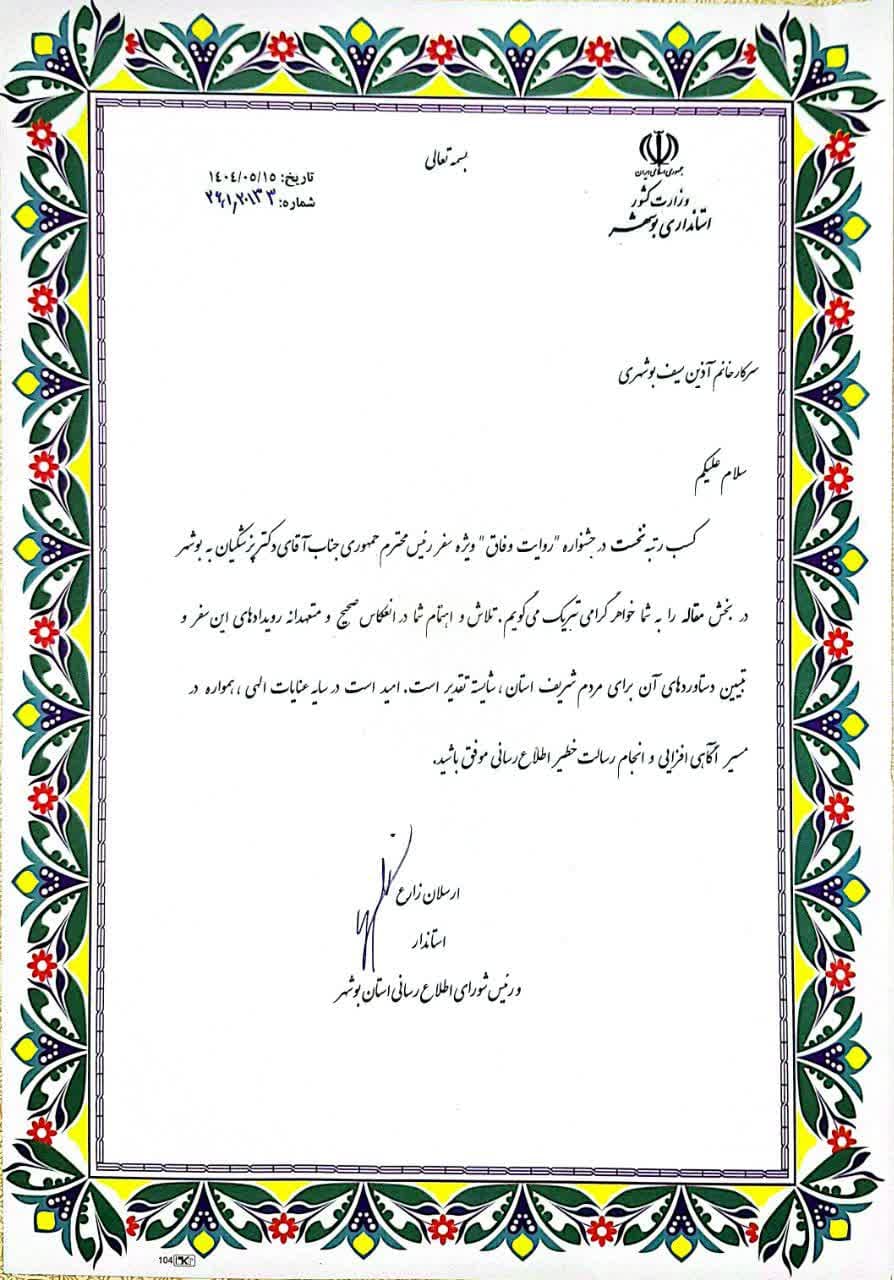 بسمه تعالی
جمهوری اسلامی ایران
وزارت کشور
استانداری بوشهر
تاریخ: ۱۴۰۴/۰۵/۱۵
شماره:
سرکار خانم آذین سیف بوشهری
سلام علیکم
کسب رتبه نخست در جشنواره "روایت وفاق" ویژه سفر رئیس محترم جمهوری جناب آقای دکتر پزشکیان به بوشهر
در بخش مقاله را به شما خواهر گرامی تبریک می‌گویم. تلاش و اهتمام شما در انعکاس صحیح و متعهدانه رویدادهای این سفر و
تبیین دستاوردهای آن برای مردم شریف استان، شایسته تقدیر است. امید است در سایه عنایات الهی، همواره در
مسیر آگاهی افزایی و انجام رسالت خطیر اطلاع رسانی موفق باشید.
ارسلان زارع
استاندار
و رئیس شورای اطلاع رسانی استان بوشهر
104